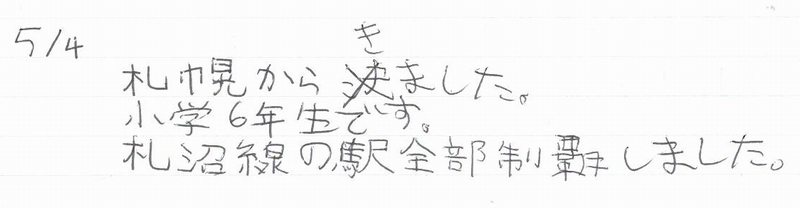 5/4
札幌からきました。
小学6年生です。
札沼線の駅全部制覇しました。